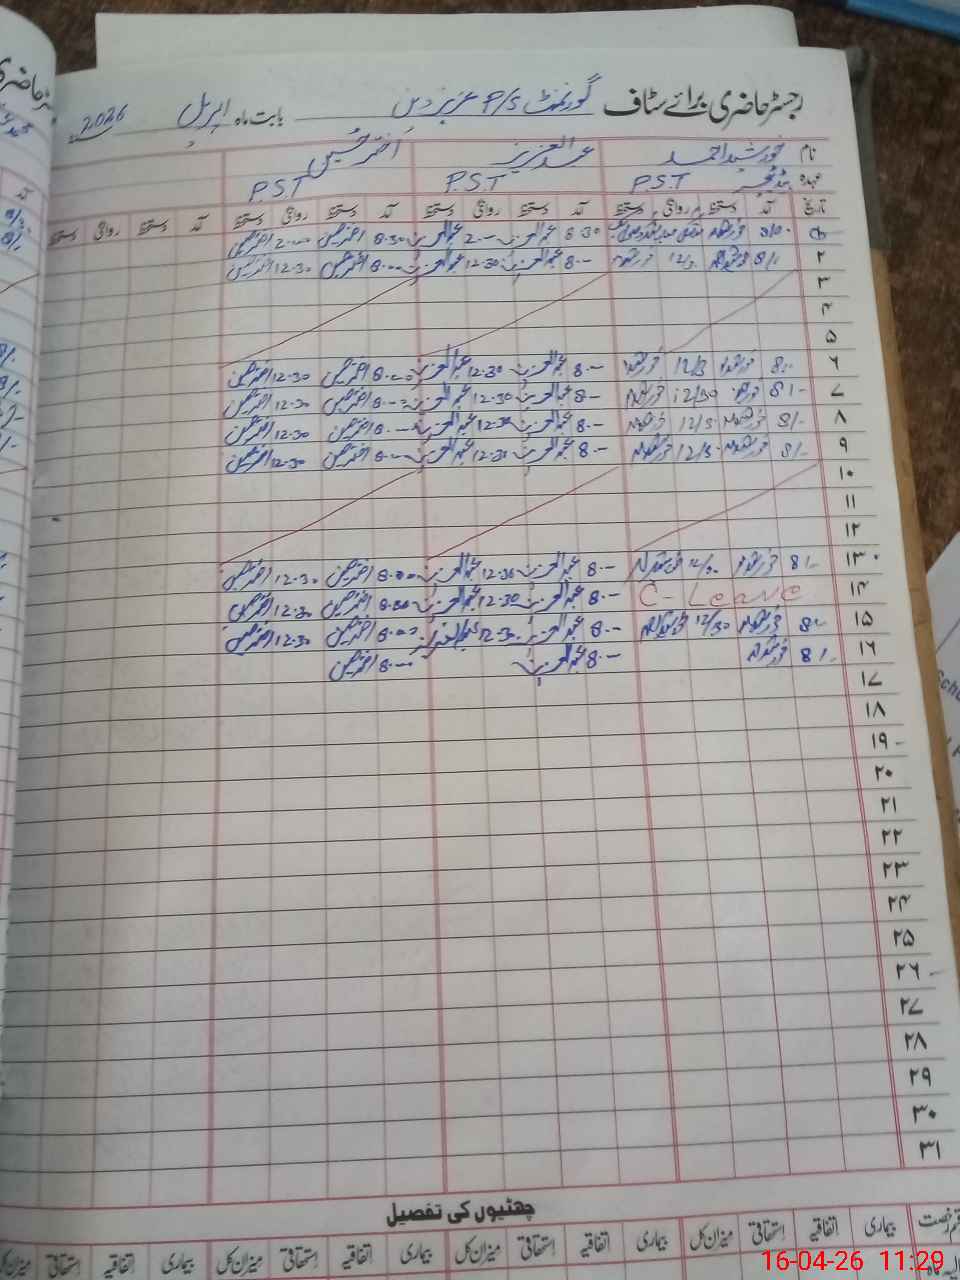 رجسٹر حاضری برائے سٹاف گورنمنٹ P/S عزیز دین بابت ماہ اپریل 2026
نام خورشید احمد عبدالعزیز اختر حسین
عہدہ ہیڈ ٹیچر P.S.T P.S.T P.S.T
تاریخ آمد دستخط روانگی دستخط آمد دستخط روانگی دستخط آمد دستخط روانگی دستخط آمد دستخط روانگی دستخط
8.30 عبدالعزیز 2.— عبدالعزیز 8.30 اختر حسین 2.00 اختر حسین
۲ 8/- خورشید 12/3 خورشید 8.— عبدالعزیز 12.30 عبدالعزیز 8.00 اختر حسین 12.30 اختر حسین
۳
۴
۵
۶ 8/- خورشید 12/3 خورشید 8.— عبدالعزیز 12.30 عبدالعزیز 8.00 اختر حسین 12.30 اختر حسین
۷ 8/- خورشید 12/30 خورشید 8.— عبدالعزیز 12.30 عبدالعزیز 8.00 اختر حسین 12.30 اختر حسین
۸ 8/- خورشید 12/3 خورشید 8.— عبدالعزیز 12.30 عبدالعزیز 8.— اختر حسین 12.30 اختر حسین
۹ 8/- خورشید 12/3 خورشید 8.— عبدالعزیز 12.30 عبدالعزیز 8.00 اختر حسین 12.30 اختر حسین
۱۰
۱۱
۱۲
۱۳ 8/- خورشید 12/30 خورشید 8.— عبدالعزیز 12.30 عبدالعزیز 8.00 اختر حسین 12.30 اختر حسین
۱۴ C- Leave 8.— عبدالعزیز 12.30 عبدالعزیز 8.00 اختر حسین 12.30 اختر حسین
۱۵ 8/- خورشید 12/30 خورشید 8.— عبدالعزیز 12.30 عبدالعزیز 8.00 اختر حسین 12.30 اختر حسین
۱۶ 8/- خورشید 8.— عبدالعزیز 8.00 اختر حسین
۱۷
۱۸
۱۹
۲۰
۲۱
۲۲
۲۳
۲۴
۲۵
۲۶
۲۷
۲۸
۲۹
۳۰
۳۱
چھٹیوں کی تفصیل
قسم رخصت بیماری اتفاقیہ استحقاقی میزان کل بیماری اتفاقیہ استحقاقی میزان کل بیماری اتفاقیہ استحقاقی میزان کل بیماری اتفاقیہ استحقاقی میزان کل
16-04-26 11:29